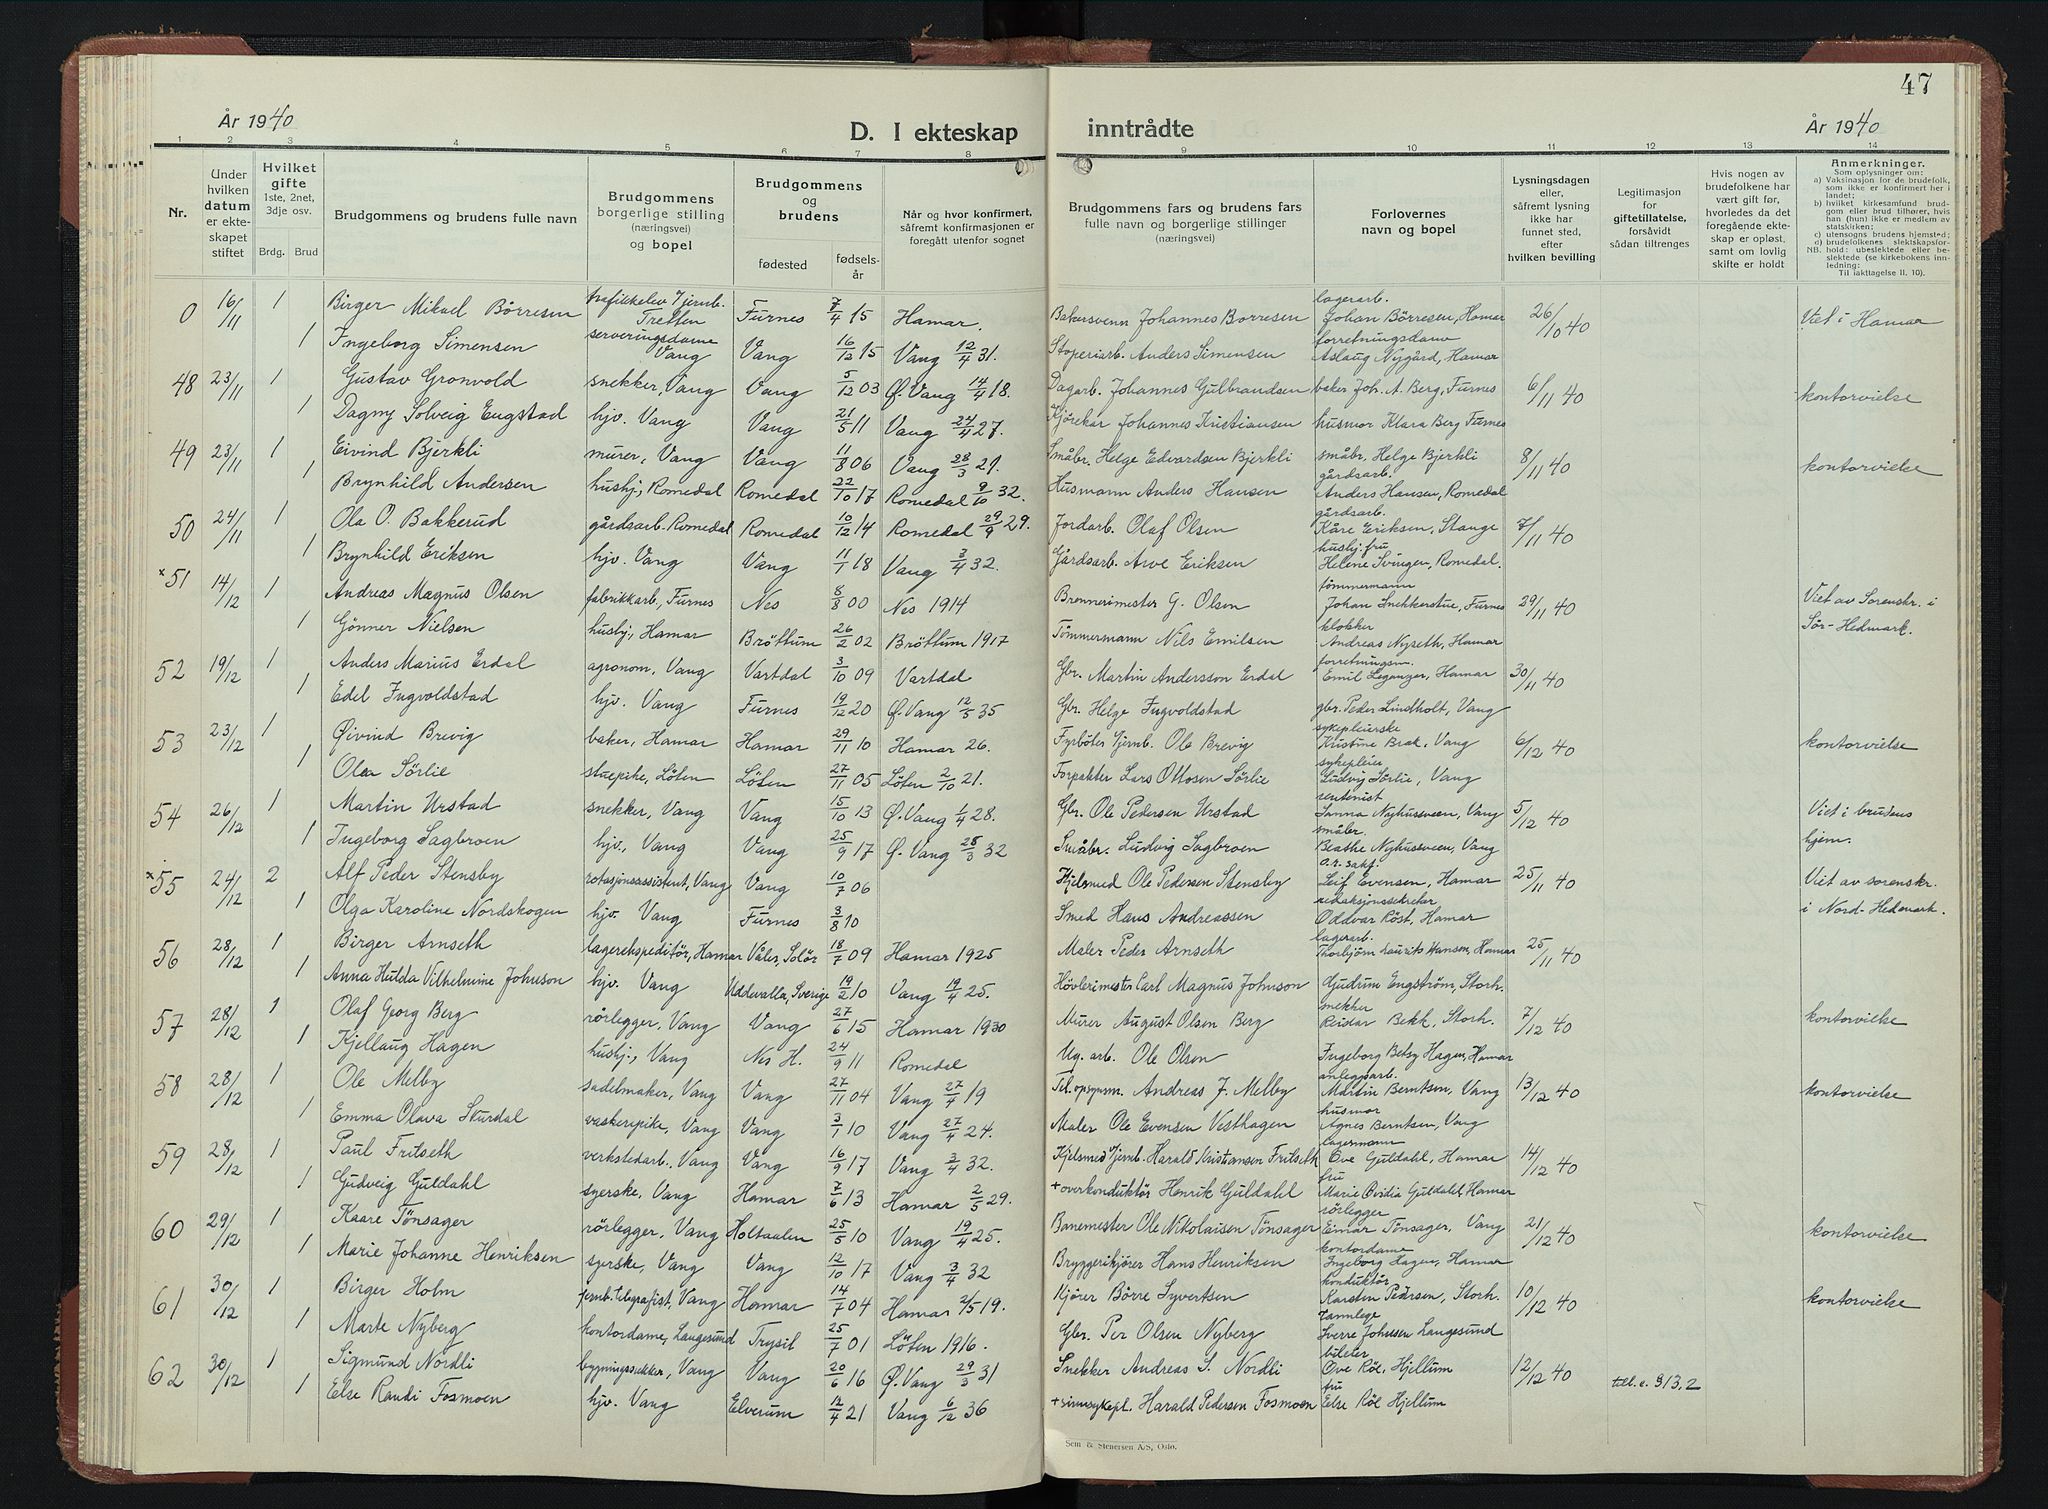 47
År 1940
D. I ekteskap inntrådte
År 1940
1 2 3 4 5 6 7 8 9 10 11 12 13 14
Nr.
Under hvilken datum er ekteskapet stiftet
Hvilket gifte 1ste, 2net, 3dje osv.
Brdg. Brud
Brudgommens og brudens fulle navn
Brudgommens borgerlige stilling (næringsvei) og bopel
Brudgommens og brudens
fødested
fødselsår
Når og hvor konfirmert, såfremt konfirmasjonen er foregått utenfor sognet
Brudgommens fars og brudens fars fulle navn og borgerlige stillinger (næringsvei)
Forlovernes navn og bopel
Lysningsdagen eller, såfremt lysning ikke har funnet sted, efter hvilken bevilling
Legitimasjon for giftetillatelse, forsåvidt sådan tiltrenges
Hvis nogen av brudefolkene har vært gift før, hvorledes da det foregående ekteskap er opløst, samt om lovlig skifte er holdt
Anmerkninger.
Som oplysninger om:
a) Vaksinasjon for de brudefolk, som ikke er konfirmert her i landet;
b) hvilket kirkesamfund brudgom eller brud tilhører, hvis han (hun) ikke er medlem av statskirken;
c) utensogns brudens hjemsted;
d) brudefolkenes slektskapsforhold: ubeslektede eller beslektede (se kirkebokens innledning:
NB. Til iakttagelse II. 10).
0 16/11 1 Birger Mikael Börresen trafikkelev v/jernb. Tretten Furnes 7/4 15 Hamar. Bakersvenn Johannes Borresen lagerarb. Johan Börresen, Hamar 26/10 40 Viet i Hamar
1 Ingeborg Simensen serveringsdame Vang Vang 16/12 15 Vang 12/4 31. Stoperiarb. Anders Simensen forretningsdame Aslaug Nygård, Hamar
48 23/11 1 Gustav Gronvold snekker, Vang Vang 5/12 03 Ø. Vang 14/4 18. Dagarb. Johannes Gulbrandsen baker Joh. A. Berg, Furnes 6/11 40 kontorvielse
1 Dagny Solveig Engstad hjv. Vang Vang 21/5 11 Vang 24/4 27. Kjörekar Johannes Kristiansen husmor Klara Berg Furnes
49 23/11 1 Eivind Bjerkli murer, Vang Vang 11/8 06 Vang 28/3 21. Småbr. Helge Edvardsen Bjerkli småbr. Helge Bjerkli 8/11 40 kontorvielse
1 Brynhild Andersen hushj., Romedal Romedal 22/10 17 Romedal 9/10 32. Husmann Anders Hansen gårdsarb. Anders Hansen, Romedal
50 24/11 1 Ola O. Bakkerud gårdsarb. Romedal Romedal 10/12 14 Romedal 29/9 29. Jordarb. Olaf Olsen gårdsarb. Kåre Eriksen, Stange 7/11 40
1 Brynhild Eriksen hjv. Vang Vang 11/1 18 Vang 3/4 32. Gårdsarb. Arve Eriksen hushj. fru Helene Svingen, Romedal.
x51 14/12 1 Andreas Magnus Olsen fabrikkarb., Furnes Nes 8/8 00 Nes 1914 Brennerimester G. Olsen tömmermann Johan Snekkerstue, Furnes 29/11 40 Viet av Sorenskr. i
1 Gönner Nielsen hushj., Hamar Bröttum 26/2 02 Bröttum 1917 Tömmermann Nils Emilsen klokker Andreas Nyseth, Hamar Sör-Hedmark.
52 19/12 1 Anders Marius Erdal agronom, Vang Vartdal 3/10 09 Vartdal Gbr. Martin Andersson Erdal forretningsm. Emil Leganger, Hamar 30/11 40
1 Edel Ingvoldstad hjv. Vang Furnes 19/12 20 Ø. Vang 12/5 35 Gbr. Helge Ingvoldstad gbr. Peder Lindholt, Vang
53 23/12 1 Øivind Brevig baker, Hamar Hamar 29/11 10 Hamar 26. Fyrböter v/jernb. Ole Brevig sykepleierske Kristine Brak, Vang 6/12 40 kontorvielse
1 Olea Sörlie stuepike, Löten Löten 27/11 05 Löten 2/10 21. Forpakter Lars Ottosen Sörlie sykepleier Ludvig Sörlie, Vang
54 26/12 1 Martin Urstad snekker, Vang Vang 15/10 13 Ø. Vang 1/4 28. Gbr. Ole Pedersen Urstad rentenist Sanna Nyhussveen, Vang 5/12 40 Viet i brudens
1 Ingeborg Sagbroen hjv., Vang Vang 25/9 17 Ø. Vang 28/3 32 Småbr. Ludvig Sagbroen småbr. Beathe Nyhussveen, Vang hjem.
x55 24/12 2 Alf Peder Stensby rotasjonsassistent, Vang Vang 10/7 06 Hjelsmed Ole Pedersen Stensby o.r. sakf. Leif Evensen, Hamar 25/11 40 Viet av sorenskr.
1 Olga Karoline Nordskogen hjv. Vang Furnes 3/8 10 Smed Hans Andreassen redaksjonssekretær Oddvar Röst, Hamar i Nord-Hedmark.
56 28/12 1 Birger Arnseth lagerekspeditör, Hamar Våler, Solör 18/7 09 Hamar 1925 Maler Peder Arnseth lagerarb. Thorbjörn Laurits Hansen, Hamar 25/11 40
1 Anna Hulda Vilhelmine Johnson hjv. Vang Uddevalla, Sverige 19/2 10 Vang 19/4 25. Hövlerimester Carl Magnus Johnson Gudrun Engström, Storh.
57 28/12 1 Olaf Georg Berg rörlegger, Vang Vang 27/6 15 Hamar 1930 Murer August Olsen Berg snekker Reidar Bekk, Storh. 7/12 40 kontorvielse
1 Kjellaug Hagen hushj., Vang Nes H. 24/9 11 Romedal Ug. arb. Ole Olsen Ingeborg Betsy Hagen, Hamar
58 28/12 1 Ole Melby sadelmaker, Vang Vang 27/11 04 Vang 27/4 19 Tel. opsynsm. Andreas J. Melby anleggsarb. Martin Berntsen, Vang 13/12 40 kontorvielse
1 Emma Olava Sturdal vaskeripike, Vang Vang 3/1 10 Vang 27/4 24. Maler Ole Evensen Vesthagen husmor Agnes Berntsen, Vang
59 28/12 1 Paul Fritseth verkstedarb., Vang Vang 16/9 17 Vang 3/4 32. Kjelsmed v/jernb. Harald Kristiansen Fritseth lagermann Ove Guldahl, Hamar 14/12 40
1 Gudveig Guldahl syerske, Vang Hamar 7/6 13 Hamar 2/5 29. + overkonduktör Henrik Guldahl fru Marie Ovidia Guldahl, Hamar
60 29/12 1 Kaare Tönsager rörlegger, Vang Holtaalen 25/5 10 Vang 19/4 25. Banemester Ole Nikolaisen Tönsager rörlegger Einar Tönsager, Vang 21/12 40 kontorvielse
1 Marie Johanne Henriksen syerske, Vang Vang 12/10 17 Vang 3/4 32 Bryggerikjörer Hans Henriksen kontordame Ingeborg Hagen, Hamar
61 30/12 1 Birger Holm jernb. telegrafist, Vang Hamar 14/7 04 Hamar 2/5 19. Kjörer Börre Syvertsen konduktör Karsten Pedersen, Storh. 10/12 40 kontorvielse
1 Marte Nyberg kontordame, Langesund Trysil 25/7 01 Löten 1916. Gbr. Per Olsen Nyberg tannlege Sverre Johnsen Langesund
62 30/12 1 Sigmund Nordli bygningssnekker, Vang Vang 20/6 16 Ø. Vang 29/3 31 Snekker Andreas S. Nordli bileier Ove Röe, Hjellum 12/12 40
1 Else Randi Fosmoen hjv. Vang Elverum 12/4 21 Vang 6/12 36 + sinnsykepl. Harald Pedersen Fosmoen fru Else Röe Hjellum till. e. § 13,2
Sem & Stenersen A/S, Oslo.